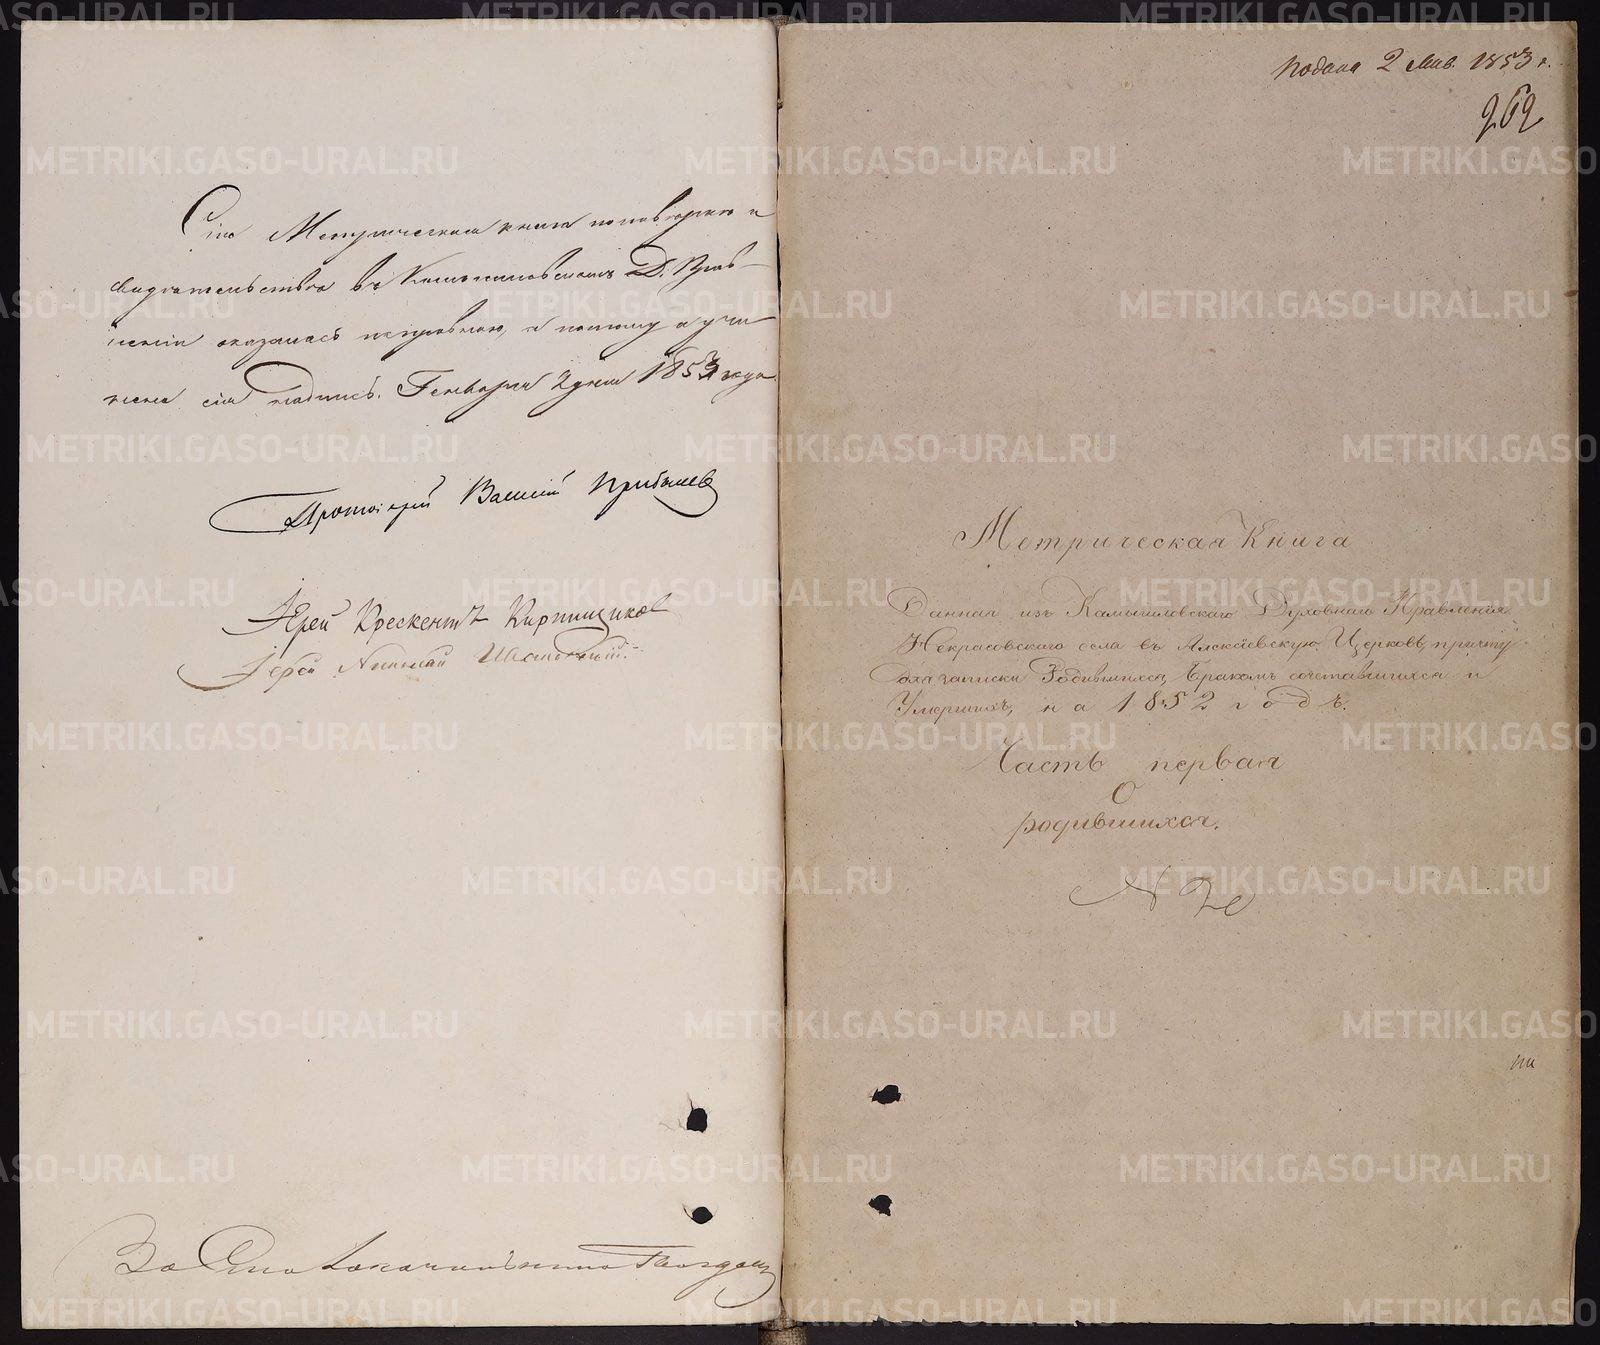 Сія Метрическая книга по повѣркѣ и
свидѣтельствѣ въ Камышловскомъ Д. Прав-
леніи оказалась исправною, а потому и учи
нена сія надпись. Генваря 2 дня 1853 года
Протоіерей Василій Прибылев
Іерей Крескентъ Кирпищиков
Іерей Николай
За Столоначальника
Подана 2 Янв. 1853 г.
262
Метрическая Книга
Данная изъ Камышловскаго Духовнаго Правленія
Некрасовскаго села въ Алексіевскую Церковь, причту
для записки Родившихся, Бракомъ сочетавшихся и
Умершихъ, на 1852 годъ.
Часть первая
О
родившихся.
METRIKI.GASO-URAL.RU